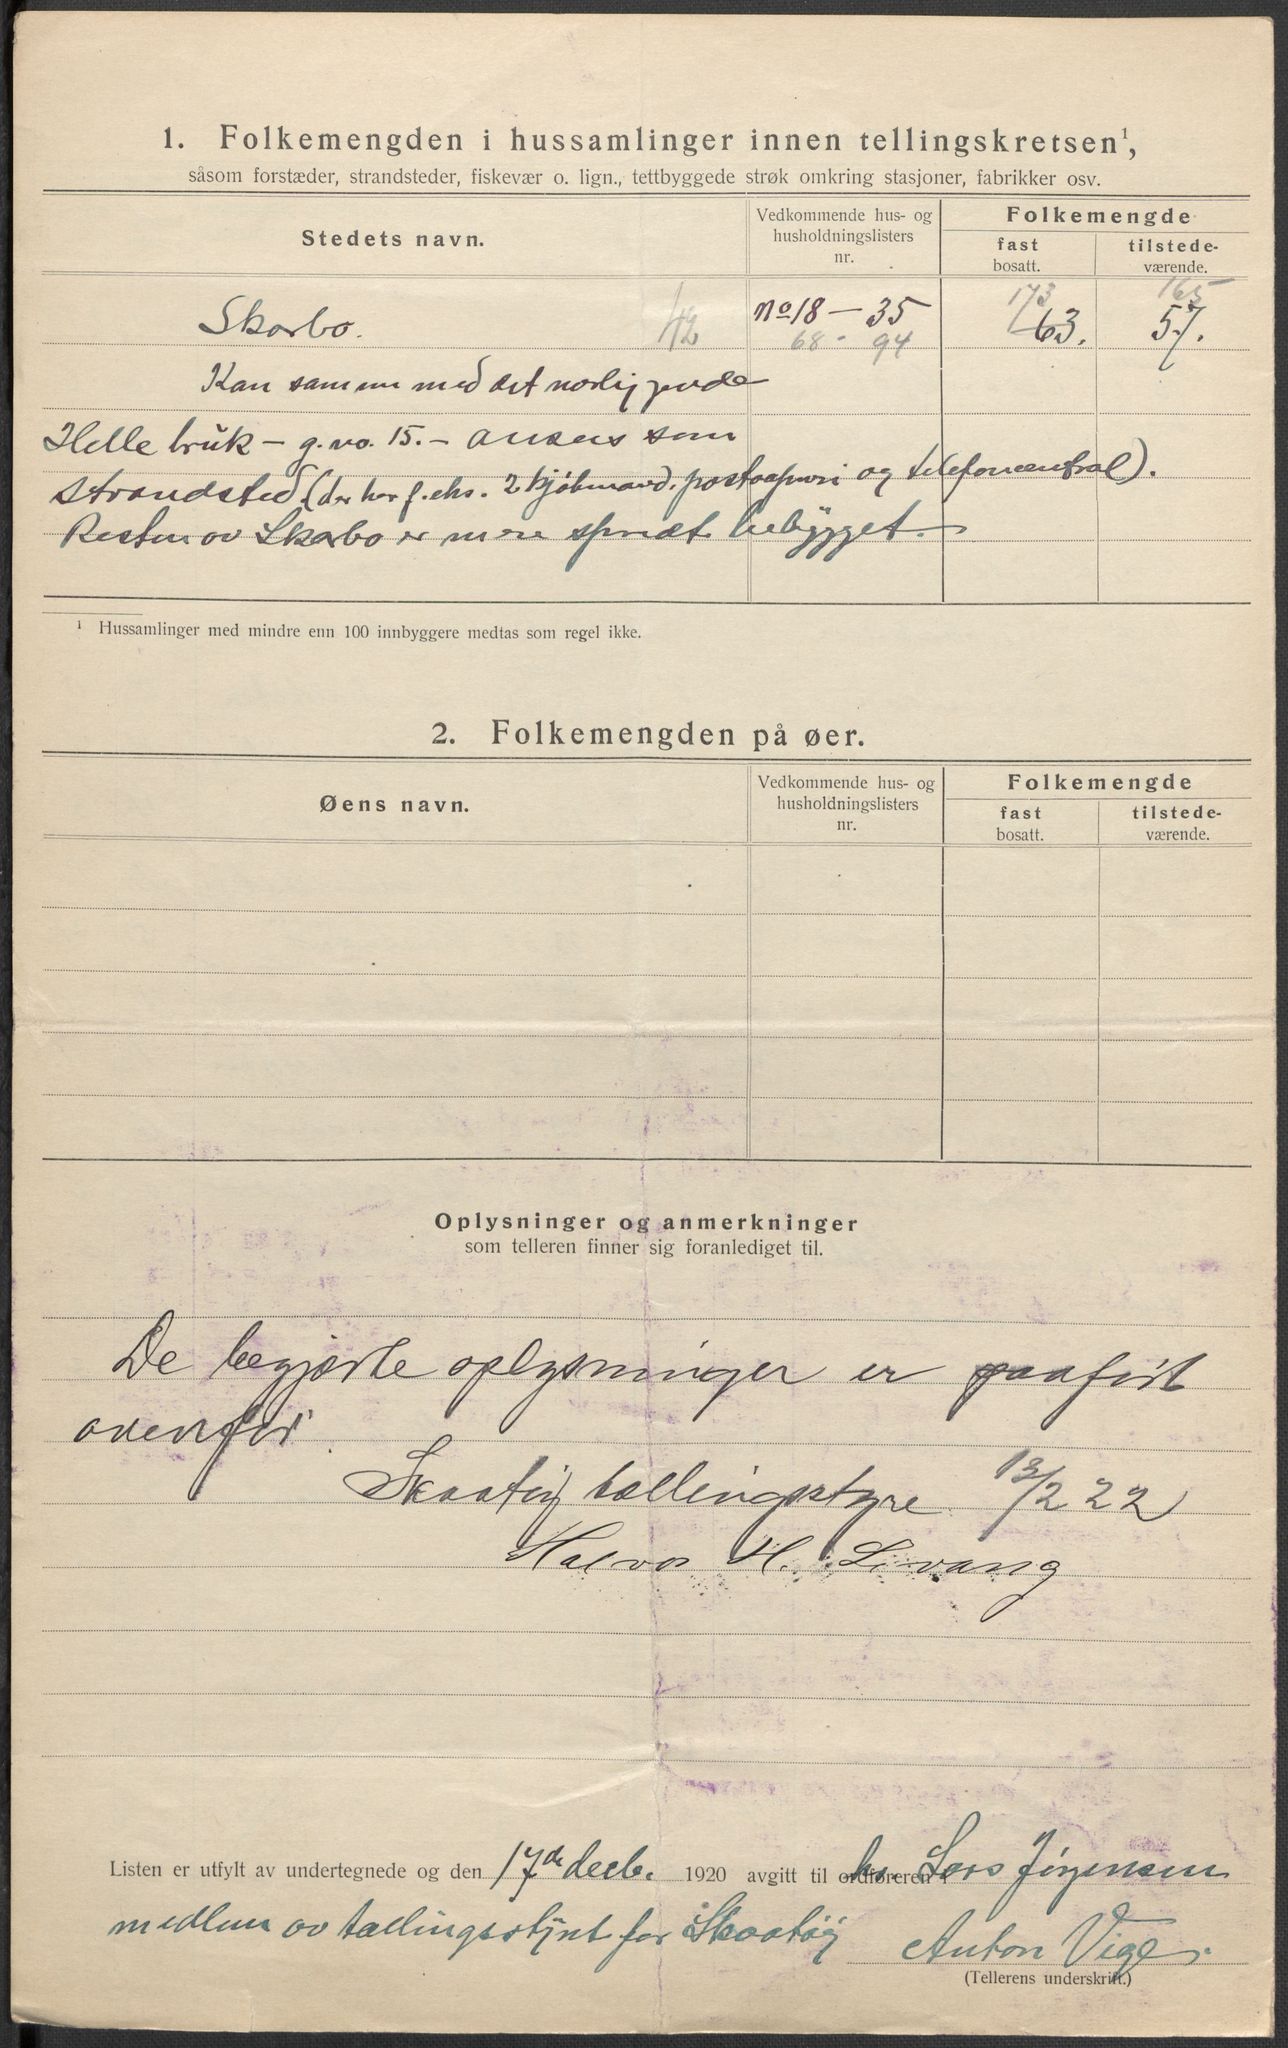 1. Folkemengden i hussamlinger innen tellingskretsen¹,
såsom forstæder, strandsteder, fiskevær o. lign., tettbyggede strøk omkring stasjoner, fabrikker osv.
Stedets navn.
Vedkommende hus- og husholdningslisters nr.
Folkemengde
fast bosatt.
tilstede-værende.
173 165
Skarbo. 42 No 18 — 35 63. 57.
68 - 94
Kan sammen med det nærliggende
Helle bruk – g.no. 15. – ansees som
strandsted (der har f.eks. 2 kjøbmænd, postaapneri og telefoncentral).
Resten av Skarbo er mere spredt bebygget.
¹ Hussamlinger med mindre enn 100 innbyggere medtas som regel ikke.
2. Folkemengden på øer.
Øens navn.
Vedkommende hus- og husholdningslisters nr.
Folkemengde
fast bosatt.
tilstede-værende.
Oplysninger og anmerkninger
som telleren finner sig foranlediget til.
De begjærte oplysninger er paaført
ovenfor.
Skaatøy tællingsstyre 13/2 22
Halvor H. Levang
Listen er utfylt av undertegnede og den 17de decb. 1920 avgitt til ordføreren hr. Lars Jørgensen
medlem av tællingsstyret for Skaatøy Anton Vige.
(Tellerens underskrift.)